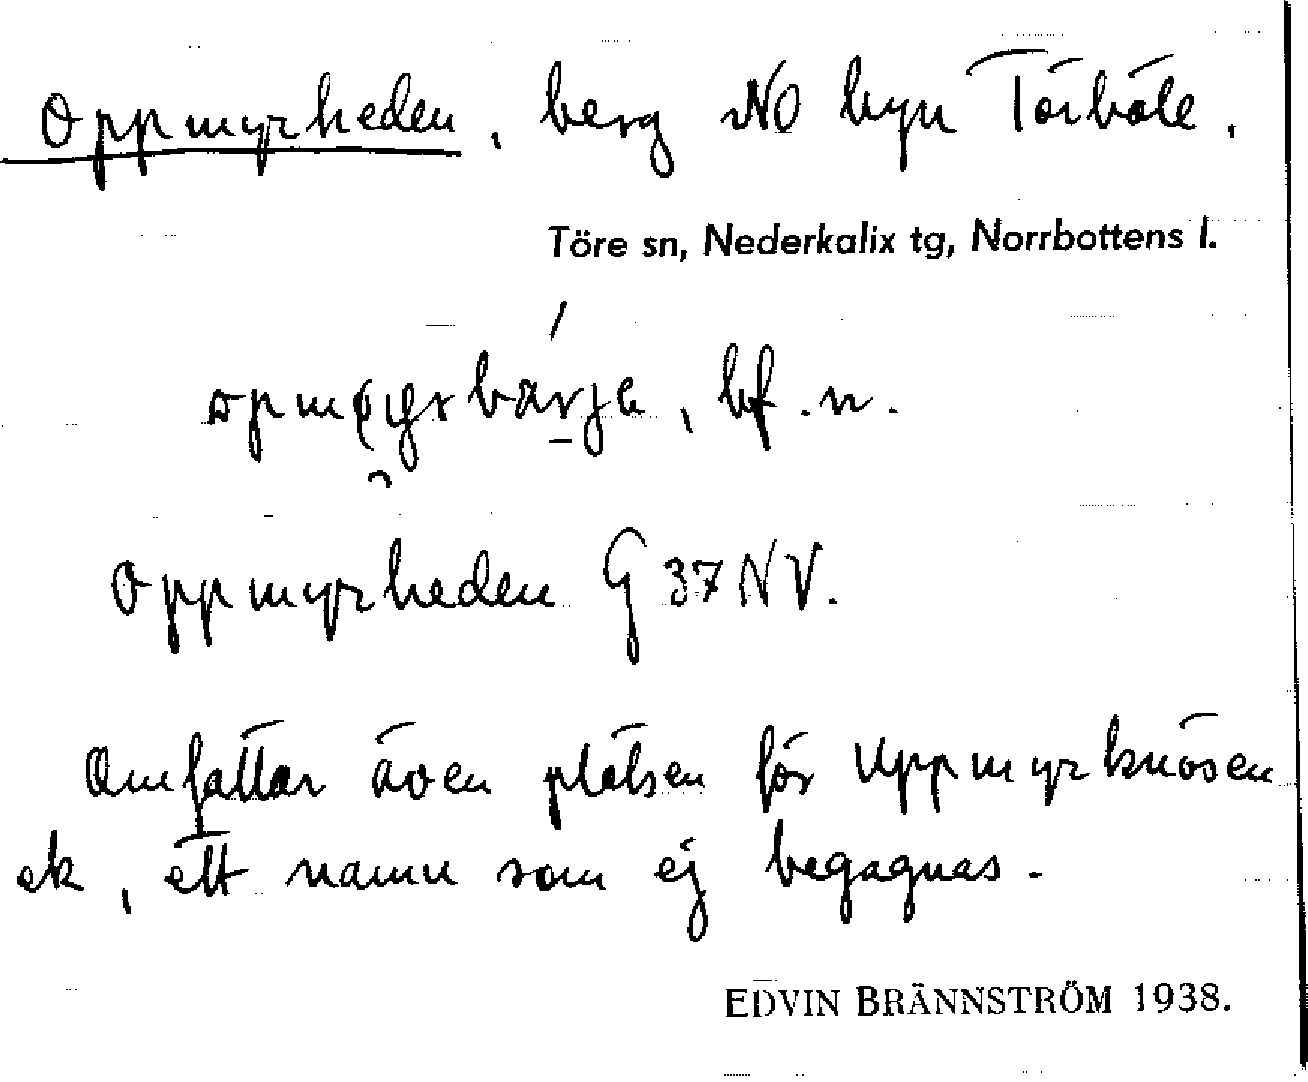 Oppmyrheden, berg NO byn Törböle.
Töre sn, Nederkalix tg, Norrbottens l.
bf. n.
Oppmyrheden G 37 NV.
Omfattar även platsen för Uppmyrknösen
ek, ett namn som ej begagnas.
EDVIN BRÄNNSTRÖM 1938.